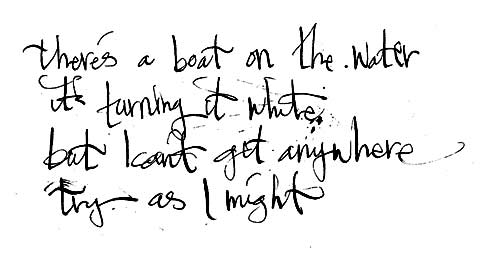 there's a boat on the water
it's turning it white
but I can't get anywhere
try as I might